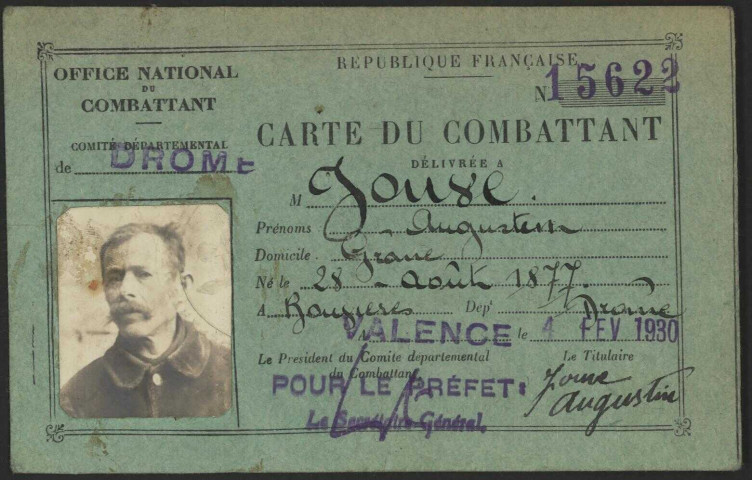 OFFICE NATIONAL
DU
COMBATTANT
COMITÉ DÉPARTEMENTAL
de DROME
RÉPUBLIQUE FRANÇAISE
N 15622
CARTE DU COMBATTANT
DÉLIVRÉE A
M Jouve.
Prénoms Augustin
Domicile. Grane
Né le 28 - Août 1877.
A Dépt Drome
A VALENCE le 4 FEV 1930
Le Président du Comité départemental
du Combattant
Le Titulaire
POUR LE PRÉFET:
Le Secrétaire Général,
Jouve
Augustin